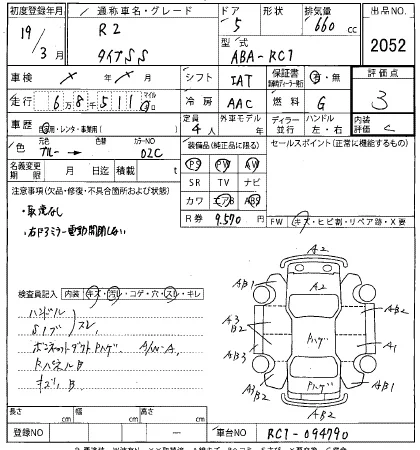 初度登録年月 通称車名・グレード ドア 形状 排気量 出品NO.
19年 R2 5 660cc 2052
3月 タイプSS 型式 ABA-RC1
車検 × 年 × 月 シフト IAT 保証書 有・無 評価点
走行 6万8千511 冷房 AAC 燃料 G 3
車歴 自家用・レンタ・事業用( ) 定員 4人 外車モデル 年 ディーラー 並行 ハンドル 左・右 内装評価 C
色 ブルー → 色替 カラーNO 02C 装備品(純正品に限る) セールスポイント(正常に機能するもの)
PS PW AW
名義変更期限 月 日迄 積載 t SR TV ナビ
注意事項(欠品・修復・不具合箇所および状態) カワ エアB ABS
・取説なし R券 9,570円
・右ドアミラー電動開閉しない FW キズ・ヒビ割・リペア跡・X要
検査員記入 内装 キズ・汚レ・コゲ・穴・スレ・キレ
ハンドル
スレ
ボンネットダクトPハゲ A/W-A.
RパネルB
キズ、B
A2
A2
AB1 AB1
A3
B2
AB2
Pハゲ
AB3 A1
A3
B2
Pハゲ
AB1
A3
AB2
長さ cm 幅 cm 高さ cm
登録NO ー 車台NO RC1-094790